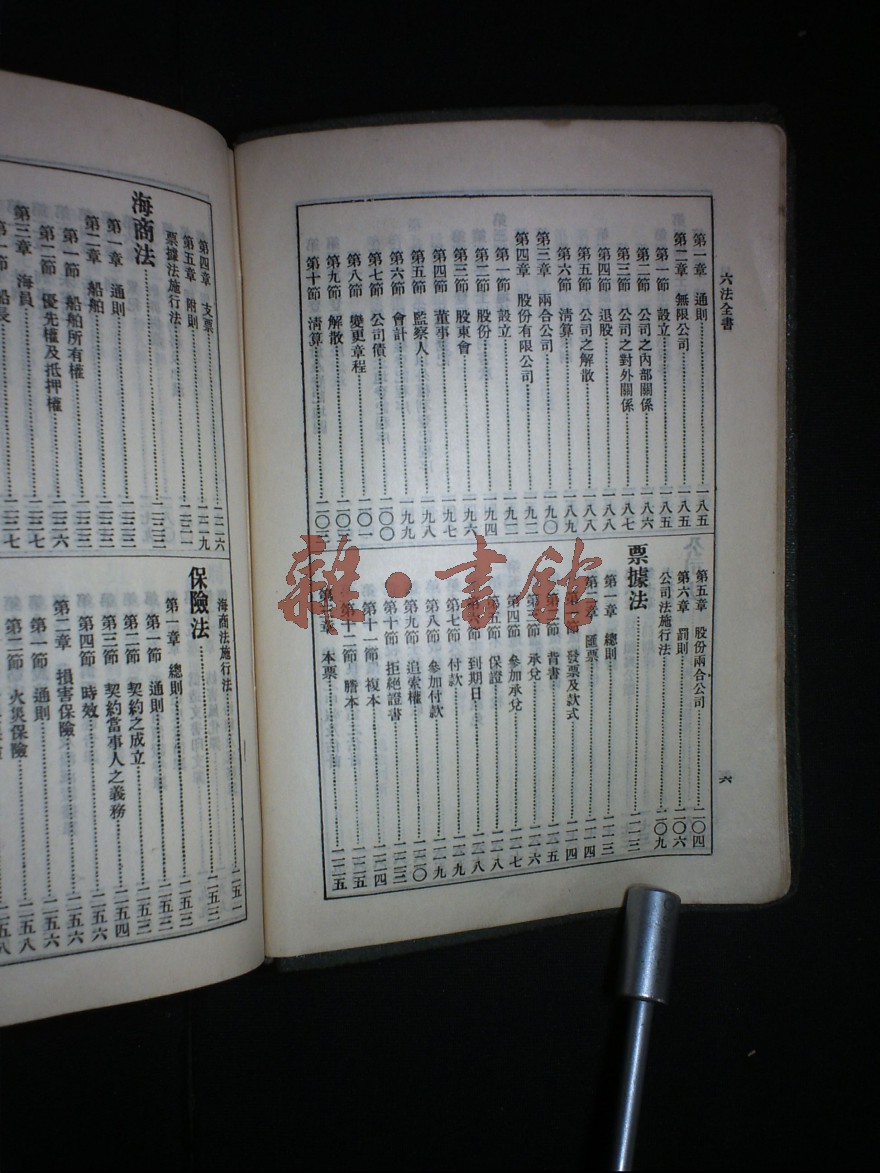 六法全書
第一章　通則……一八五
第二章　無限公司……一八五
第一節　設立……一八五
第二節　公司之內部關係……一八六
第三節　公司之對外關係……一八七
第四節　退股……一八八
第五節　公司之解散……一八八
第六節　清算……一八九
第三章　兩合公司……一九〇
第四章　股份有限公司……一九二
第一節　設立……一九二
第二節　股份……一九四
第三節　股東會……一九六
第四節　董事……一九七
第五節　監察人……一九八
第六節　會計……一九九
第七節　公司債……二〇〇
第八節　變更章程……二〇一
第九節　解散……二〇二
第十節　清算……二〇三
第五章　股份兩合公司……二〇四
第六章　罰則……二〇六
公司法施行法……二〇九
票據法……二一三
第一章　總則……二一三
第二章　匯票……二一四
第一節　發票及款式……二一四
第二節　背書……二一五
第三節　承兌……二一六
第四節　參加承兌……二一七
第五節　保證……二一八
第六節　到期日……二一八
第七節　付款……二一九
第八節　參加付款……二一九
第九節　追索權……二二〇
第十節　拒絕證書……二二三
第十一節　複本……二二四
第十二節　謄本……二二五
第三章　本票……二二五
六
第四章　支票……二二六
第五章　附則……二二九
票據法施行法……二三一
海商法……二三三
第一章　通則……二三三
第二章　船舶……二三三
第一節　船舶所有權……二三三
第二節　優先權及抵押權……二三六
第三章　海員……二三七
第一節　船長……二三七
海商法施行法……二五一
保險法……二五三
第一章　總則……二五三
第一節　通則……二五三
第二節　契約之成立……二五三
第三節　契約當事人之義務……二五四
第四節　時效……二五六
第二章　損害保險……二五六
第一節　通則……二五六
第二節　火災保險……二五八
雜·書館